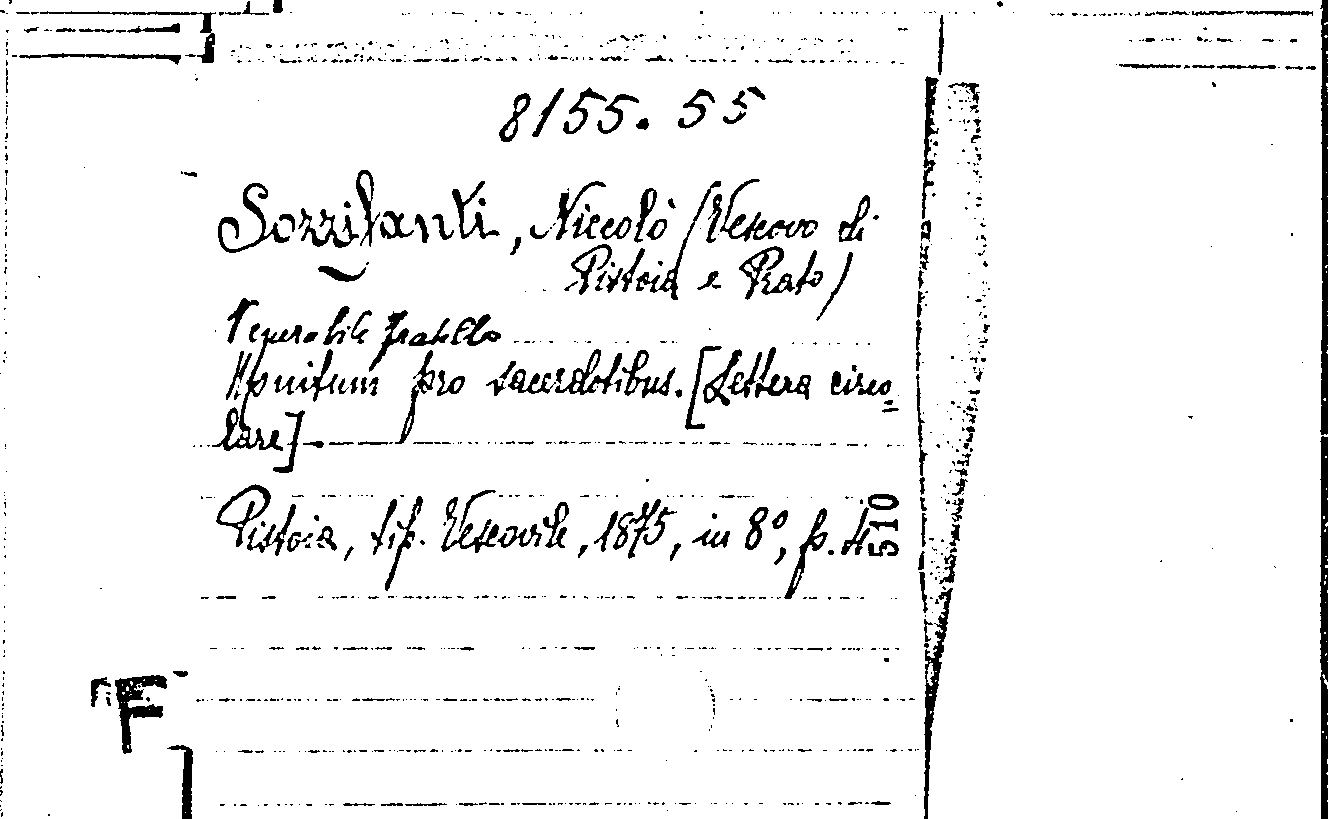 8155.55
Sozzifanti, Niccolò (Vescovo di
Pistoia e Prato)
Venerabile fratello
Monitum pro sacerdotibus. [Lettera circo=
lare]
Pistoia, tip. Vescovile, 1875, in 8º, p.
510
F